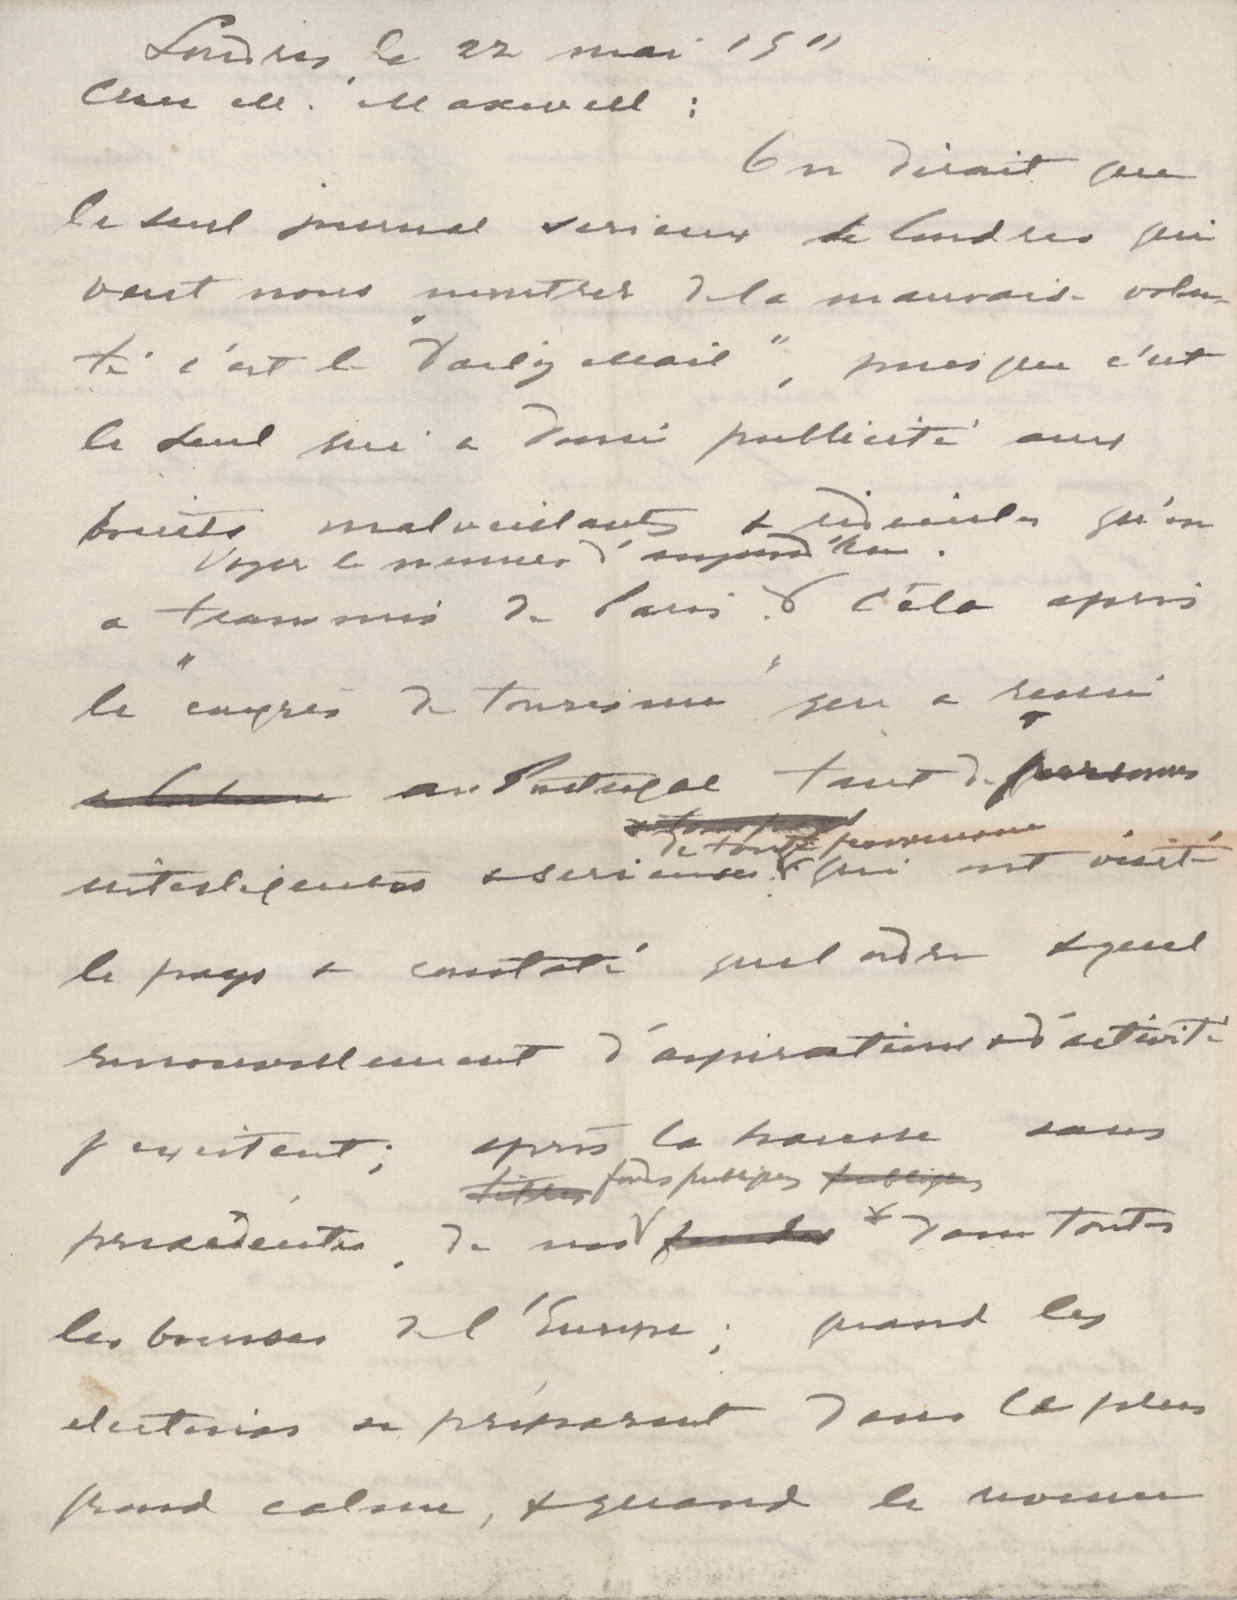 Londres le 22 mai 1911
Cher M. Maxwell :
On dirait que
le seul journal serieux de Londres qui
veut nous montrer de la mauvaise volon-
té c'est le "Daily Mail", puisque c'est
le seul qui a donné publicité aux
bruits malveillants & ridicules qu'on
Voyez le numero d'aujourd'hui.
a transmis de Paris. Cèla après
le "congrès de tourisme" qui a reuni
au Portugal tant de personnes
de toute
intelligentes & serieuses qui ont visité
le pays & constaté quel ordre & quel
renouvellement d'aspirations & d'activité
y existent; après la hausse sans
titres fonds publiques publiques
precedentes, de nos fondos dans toutes
les bourses de l'Europe; quand les
elections se préparent dans le plus
grand calme, & quand le